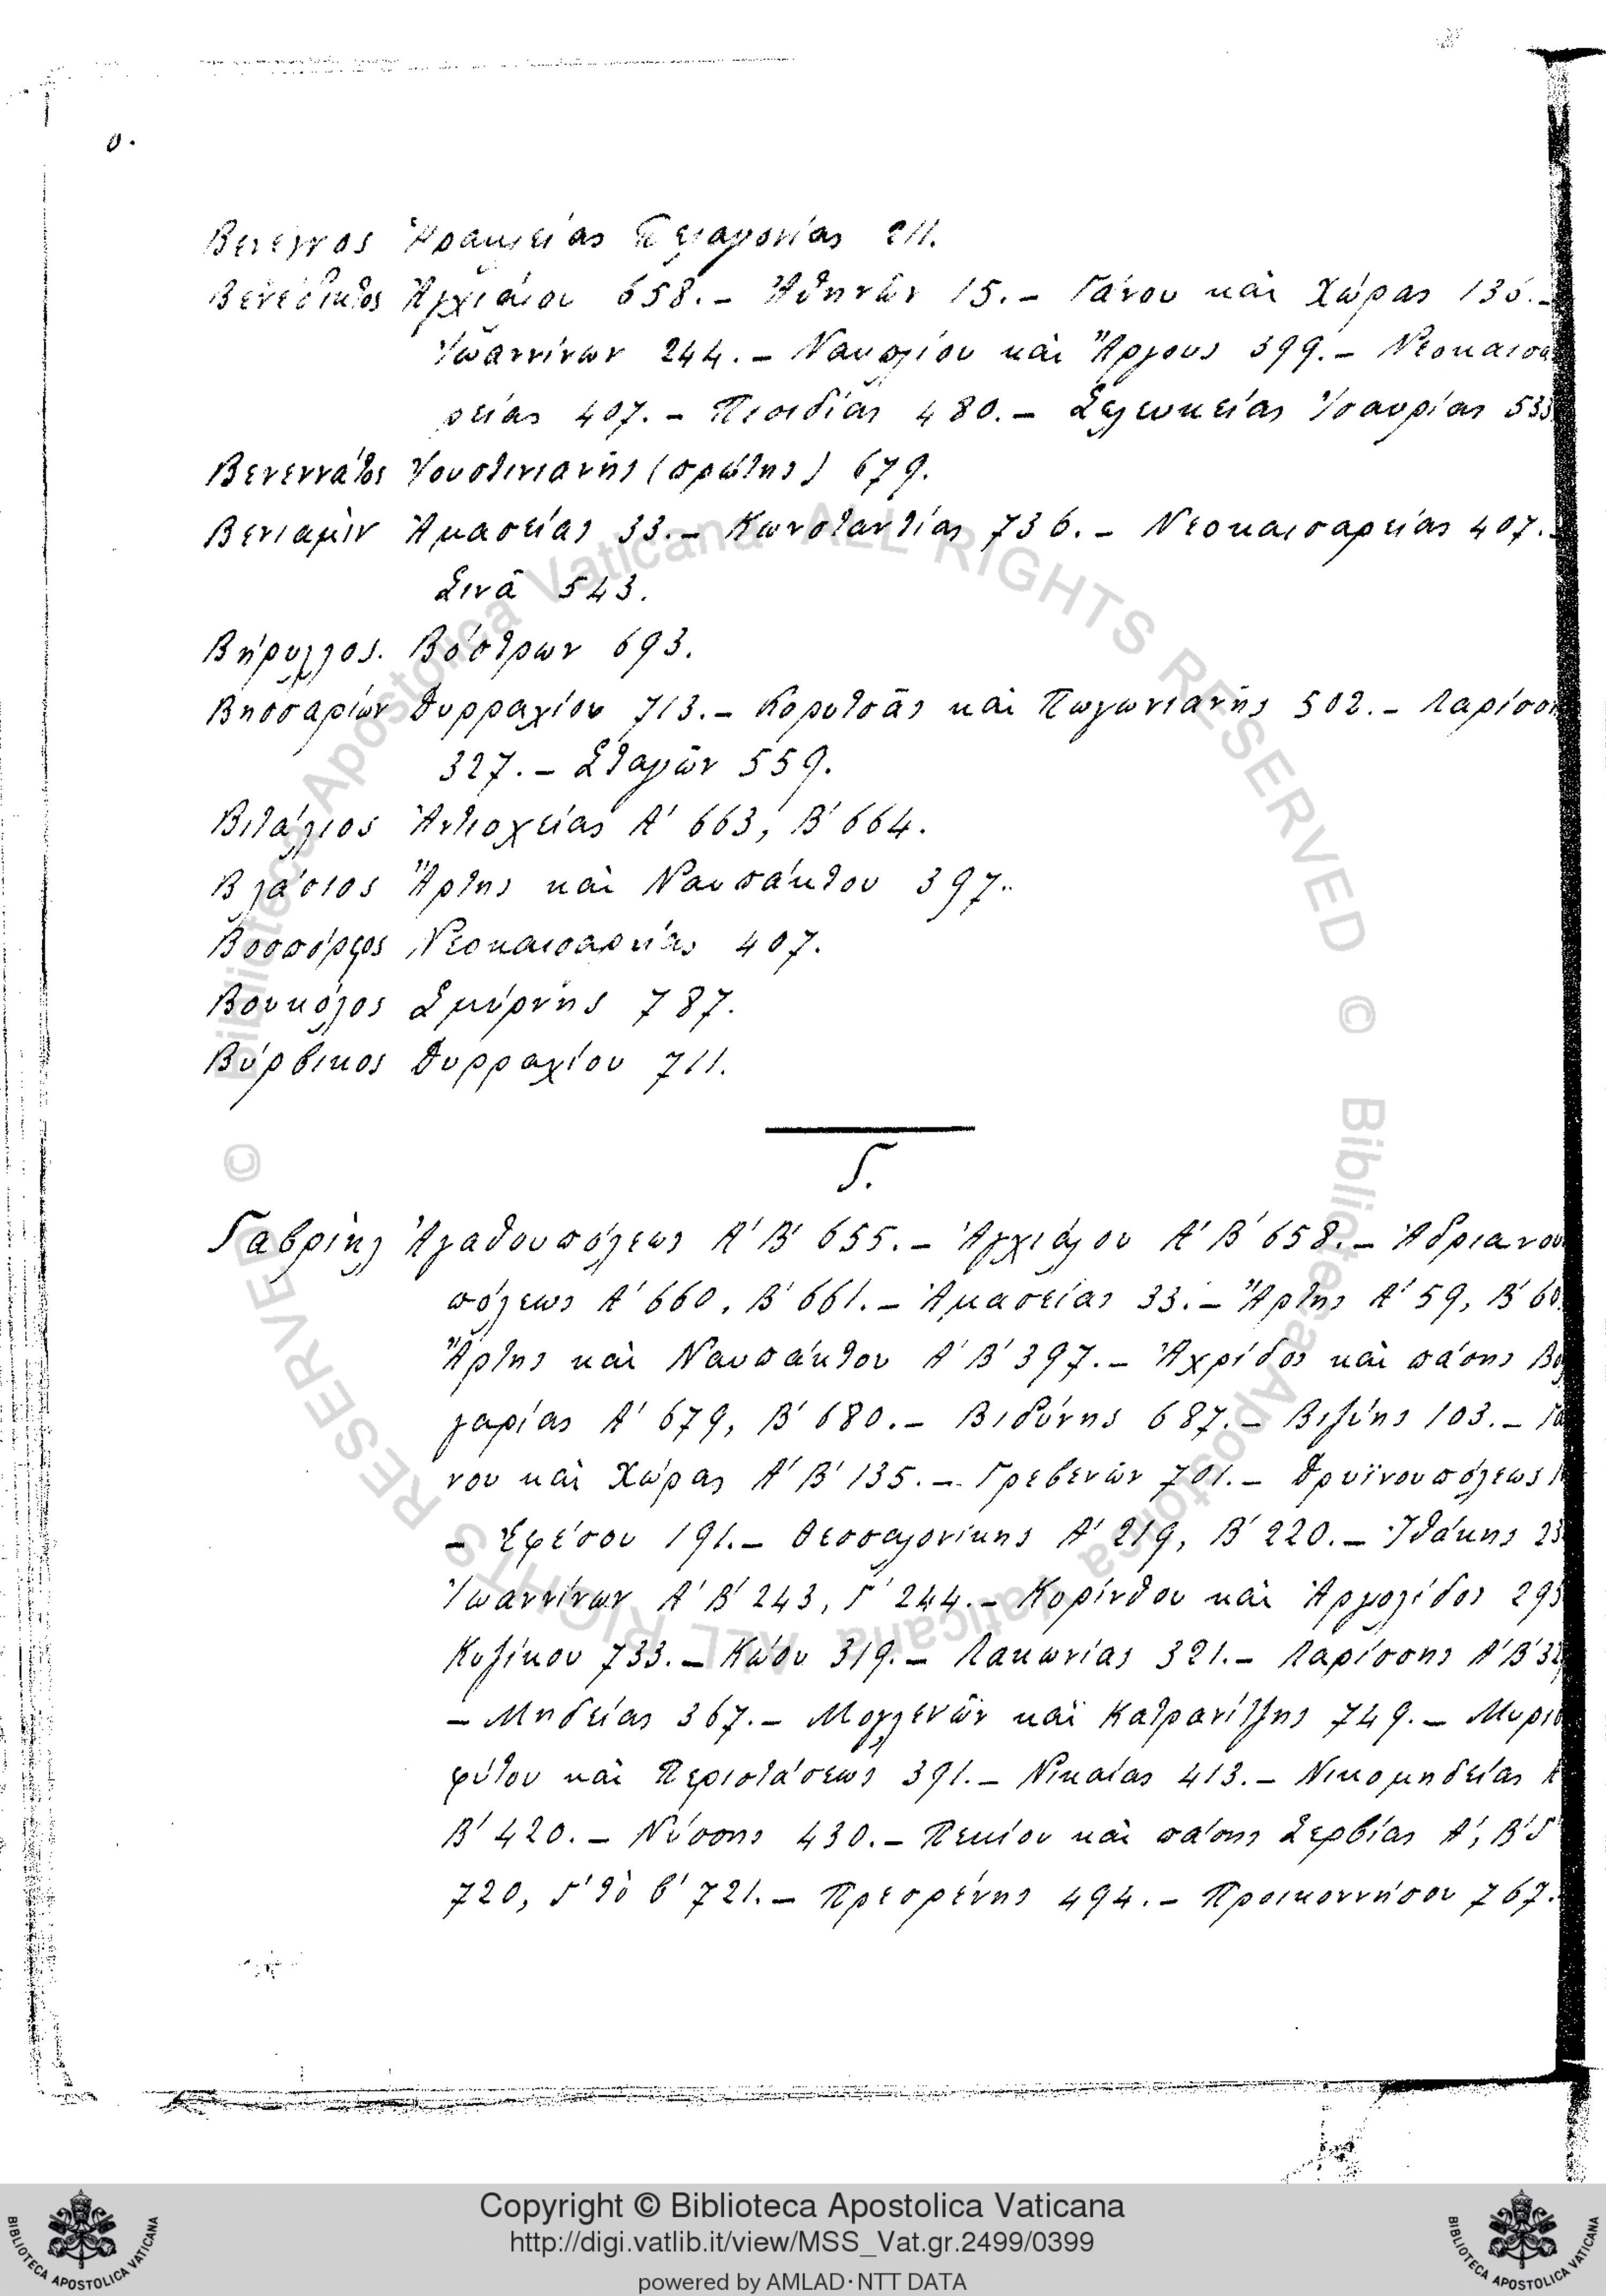 Βενίγνος Ἡρακλείας Πελαγονίας 211.
Βενέδικτος Ἀγχιάλου 658.– Ἀθηνῶν 15.– Γάνου καὶ Χώρας 136.–
Ἰωαννίνων 244.– Ναυπλίου καὶ Ἄργους 399.– Νεοκαισα
ρείας 407.– Πισιδίας 480.– Σελευκείας Ἰσαυρίας 533
Βενεννάτος Ἰουστινιανῆς (πρώτης) 679.
Βενιαμὶν Ἀμασείας 33.– Κωνσταντίας 736.– Νεοκαισαρείας 407.–
Σινᾶ 543.
Βήρυλλος. Βόστρων 693.
Βησσαρίων Δυρραχίου 713.– Κορυτσᾶς καὶ Πωγωνιανῆς 502.– Λαρίσση
327.– Σταγῶν 559.
Βιτάλιος Ἀντιοχείας Α' 663, Β' 664.
Βλάσιος Ἄρτης καὶ Ναυπάκτου 397.
Βοσπόριος Νεοκαισαρείας 407.
Βουκόλος Σμύρνης 787.
Βύρβικος Δυρραχίου 711.
Γ.
Γαβριὴλ Ἀγαθουπόλεως Α' Β' 655.– Ἀγχιάλου Α' Β' 658.– Ἀδριανου
πόλεως Α' 660, Β' 661.– Ἀμασείας 33.– Ἄρτης Α' 59, Β' 60
Ἄρτης καὶ Ναυπάκτου Α' Β' 397.– Ἀχρίδος καὶ πάσης Βουλ
γαρίας Α' 679, Β' 680.– Βιδύνης 687.– Βιζύης 103.– Γά
νου καὶ Χώρας Α' Β' 135.– Γρεβενῶν 701.– Δρυϊνουπόλεως
– Ἐφέσου 191.– Θεσσαλονίκης Α' 219, Β' 220.– Ἰθάκης 23
Ἰωαννίνων Α' Β' 243, Γ' 244.– Κορίνθου καὶ Ἀργολίδος 295
Κυζίκου 733.– Κώου 319.– Λακωνίας 321.– Λαρίσσης Α' Β' 32
– Μηδείας 367.– Μογλενῶν καὶ Κατρανίτζης 749.– Μυριο
φύτου καὶ Περιστάσεως 391.– Νικαίας 413.– Νικομηδείας Α
Β' 420.– Νύσσης 430.– Πεκίου καὶ πάσης Σερβίας Α', Β' Γ'
720, Γ' τὸ β' 721.– Πρεσρένης 494.– Προικοννήσου 767.
© Biblioteca Apostolica Vaticana ALL RIGHTS RESERVED
© Biblioteca Apostolica Vaticana ALL RIGHTS RESERVED
Copyright © Biblioteca Apostolica Vaticana
http://digi.vatlib.it/view/MSS_Vat.gr.2499/0399
powered by AMLAD·NTT DATA
BIBLIOTECA APOSTOLICA VATICANA
BIBLIOTECA APOSTOLICA VATICANA